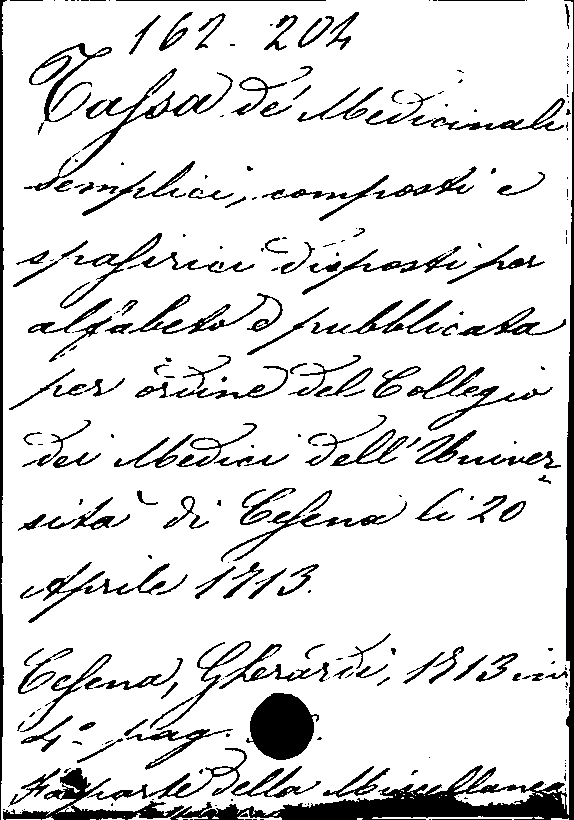 162. 204
Tassa de' Medicinali
semplici, composti e
spasirici disposti per
alfabeto e pubblicata
per ordine del Collegio
dei Medici dell'Univer-
sità di Cesena li 20
Aprile 1713.
Cesena, Gherardi, 1713 in
4.º pag.
Fa parte della Miscellanea